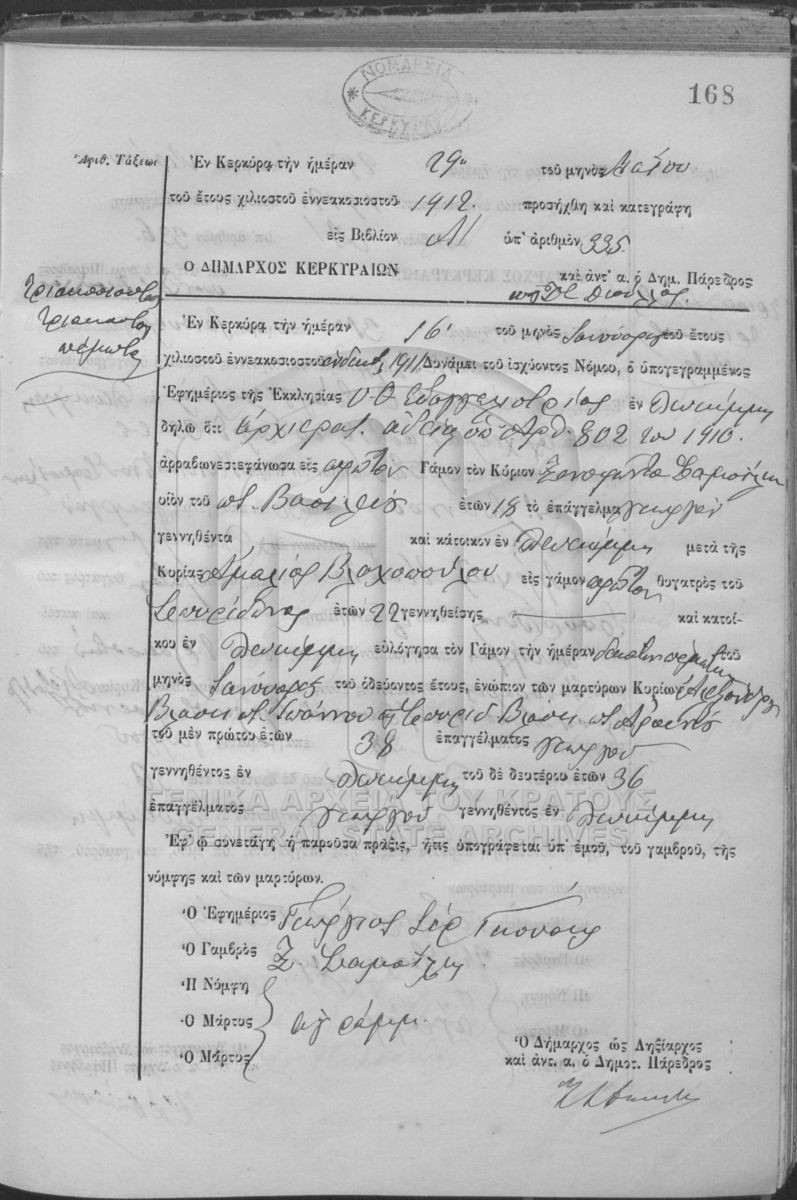 ΝΟΜΑΡΧΙΑ
ΚΕΡΚΥΡΑΣ
168
Ἀριθ. Τάξεως
Ἐν Κερκύρᾳ τὴν ἡμέραν 29η τοῦ μηνὸς Μαΐου
τοῦ ἔτους χιλιοστοῦ ἐννεακοσιοστοῦ 1912. προσήχθη καὶ κατεγράφη
εἰς Βιβλίον ὑπ' ἀριθμὸν 335
Ὁ ΔΗΜΑΡΧΟΣ ΚΕΡΚΥΡΑΙΩΝ καὶ ἀντ' α. ὁ Δημ. Πάρεδρος
τριακοσιοστὸν
τριακοστὸν
πέμπτον
Ἐν Κερκύρᾳ τὴν ἡμέραν 16 τοῦ μηνὸς Ἰανουαρίου τοῦ ἔτους
χιλιοστοῦ ἐννεακοσιοστοῦ ἑνδεκάτου 1911 Δυνάμει τοῦ ἰσχύοντος Νόμου, ὁ ὑπογεγραμμένος
Ἐφημέριος τῆς Ἐκκλησίας Υ.Θ Εὐαγγελιστρίας ἐν Λευκίμμῃ
δηλῶ ὅτι ἀρχιερατ. ἀδείᾳ ὑπ' ἀρ. 802 του 1910.
ἀρραβωνεστεφάνωσα εἰς πρῶτον Γάμον τὸν Κύριον Ξενοφῶντα
υἱὸν τοῦ ποτ. Βασιλείου ἐτῶν 18 τὸ ἐπάγγελμα γεωργὸν
γεννηθέντα καὶ κάτοικον ἐν Λευκίμμῃ μετὰ τῆς
Κυρίας Ἀμαλίας Βλαχοπούλου εἰς γάμον πρῶτον θυγατρὸς τοῦ
Σπυρίδωνος ἐτῶν 22 γεννηθείσης καὶ κατοί-
κου ἐν Λευκίμμῃ εὐλόγησα τὸν Γάμον τὴν ἡμέραν δεκάτην πέμπτην τοῦ
μηνὸς Ἰανουαρίου τοῦ ὁδεύοντος ἔτους, ἐνώπιον τῶν μαρτύρων Κυρίων Ἀλεξάνδρου
Βλάση ποτ. Ἰωάννου καὶ Σπυρίδ. Βλάση ποτ.
τοῦ μὲν πρώτου ἐτῶν 38 ἐπαγγέλματος γεωργοῦ
γεννηθέντος ἐν Λευκίμμῃ τοῦ δὲ δευτέρου ἐτῶν 36
ἐπαγγέλματος γεωργοῦ γεννηθέντος ἐν Λευκίμμῃ
ΓΕΝΙΚΑ ΑΡΧΕΙΑ ΤΟΥ ΚΡΑΤΟΥΣ
GENERAL STATE ARCHIVES
Ἐφ' ᾧ συνετάγη ἡ παροῦσα πρᾶξις, ἥτις ὑπογράφεται ὑπ' ἐμοῦ, τοῦ γαμβροῦ, τῆς
νύμφης καὶ τῶν μαρτύρων.
Ὁ Ἐφημέριος Γεώργιος
Ὁ Γαμβρὸς Ξ.
Ἡ Νύμφη
Ὁ Μάρτυς ἀγράμμ.
Ὁ Μάρτυς
Ὁ Δήμαρχος ὡς Ληξίαρχος
καὶ ἀντ. α. ὁ Δημοτ. Πάρεδρος